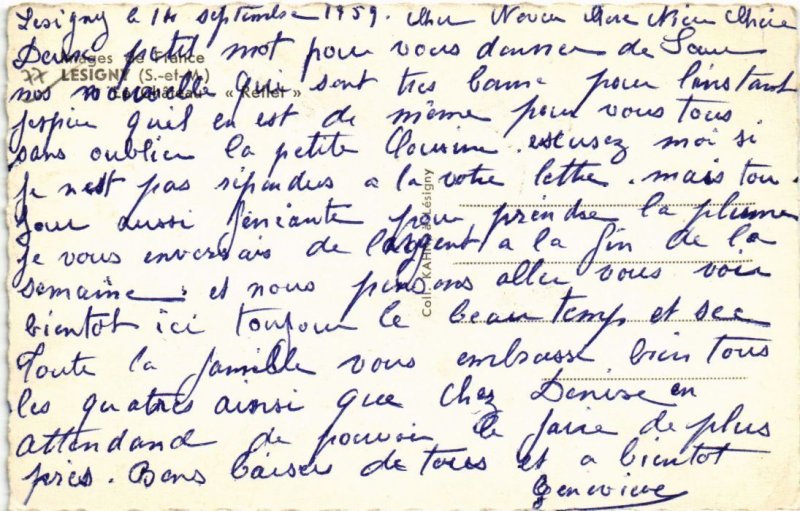 Lesigny le 14 septembre 1959.
Deux petit mot pour vous donner de
Images de France
LESIGNY (S.-et-M.)
Le Château - « Reflet »
nos nouvelle qui sont tres bonne pour l'instant
j'espire quel en est de même pour vous tous
sans oublier la petite Cousine. escusez moi si
je n'est pas répondus a la votre lettre. mais tou-
jour aussi feniante pour prendre la plume
je vous enverrais de l'argent a la fin de la
semaine. et nous pensons aller vous voir
bientot ici toujour le beau temp et sec
Toute la famille vous embrasse bien tous
les quatres ainsi que chez Denise en
attendand de pouvoir le faire de plus
près. Bons baiser de tous et a bientot
Genevieve
Coll. KAHN à Lésigny